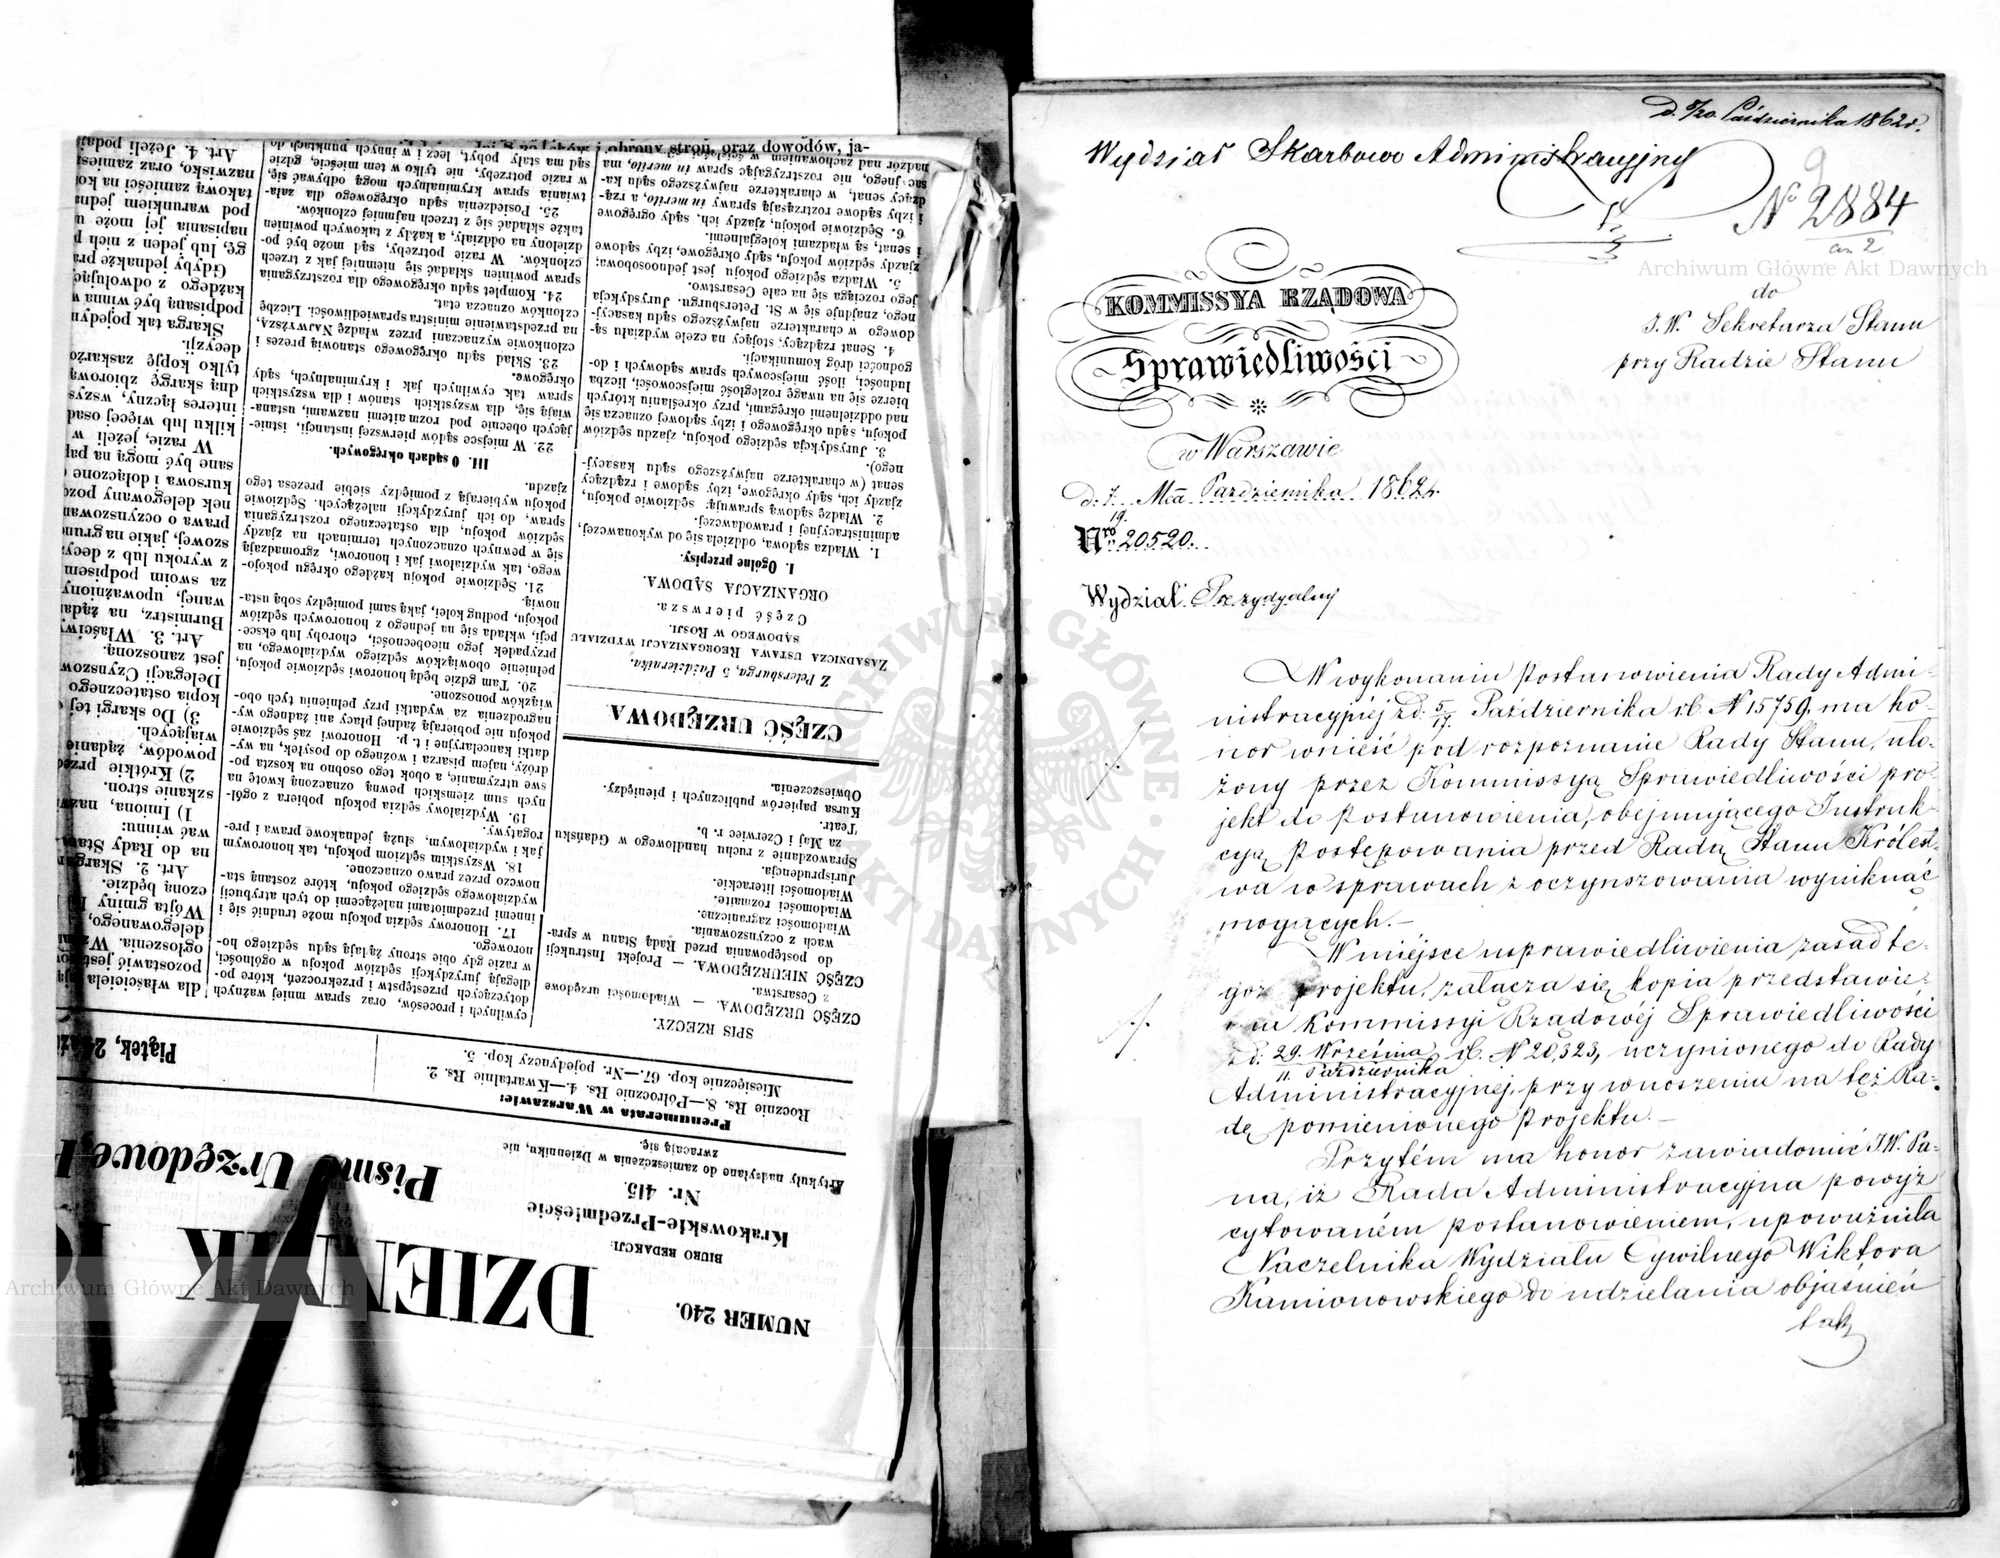 NUMER 240.
DZIENNIK
BIURO REDAKCJI:
Krakowskie-Przedmieście
Nr. 415.
Artykuły nadsyłane do zamieszczenia w Dzienniku, nie
zwracają się.
Pismo Urzędowe,
Prenumerata w Warszawie:
Rocznie Rs. 8.—Półrocznie Rs. 4.—Kwartalnie Rs. 2.
Miesięcznie kop. 67.—Nr. pojedynczy kop. 5.
Piątek,
SPIS RZECZY.
CZĘŚĆ URZĘDOWA. — Wiadomości urzędowe
z Cesarstwa.
CZĘŚĆ NIEURZĘDOWA. — Projekt Instrukcji
do postępowania przed Radą Stanu w spra-
wach z oczynszowania.
Wiadomości zagraniczne.
Wiadomości rozmaite.
Wiadomości literackie.
Jurisprudencja.
Sprawozdanie z ruchu handlowego w Gdańsku
za Maj i Czerwiec r. b.
Teatr.
Kursa papierów publicznych i pieniędzy.
Obwieszczenia.
CZĘŚĆ URZĘDOWA
Z Petersburga, 5 Października.
ZASADNICZA USTAWA REORGANIZACJI WYDZIAŁU
SĄDOWEGO W ROSJI.
Część pierwsza.
ORGANIZACJA SĄDOWA.
I. Ogólne przepisy.
1. Władza sądowa, oddziela się od wykonawczej,
administracyjnej i prawodawczej.
2. Władzę sądową sprawują: sędziowie pokoju,
zjazdy ich, sądy okręgowe, izby sądowe i rządzący
senat (w charakterze najwyższego sądu kasacyj-
nego).
3. Jurysdykcja sędziego pokoju, zjazdu sędziów
pokoju, sądu okręgowego i izby sądowej oznacza się
nad oddzielnemi okręgami, przy określaniu których
bierze się na uwagę rozległość miejscowości, liczba
ludności, ilość miejscowych spraw sądowych i do-
godności dróg komunikacji.
4. Senat rządzący, stojący na czele wydziału są-
dowego w charakterze najwyższego sądu kasacyj-
nego, znajduje się w St. Petersburgu. Jurysdykcja
jego rozciąga się na całe Cesarstwo.
5. Władza sędziego pokoju jest jednoosobowa;
zjazdy sędziów pokoju, sądy okręgowe, izby sądowe
i senat, są władzami kolegjalnemi.
6. Sędziowie pokoju, zjazdy ich, sądy okręgowe
i izby sądowe roztrząsają sprawy in merito, a rzą-
dzący senat, w charakterze najwyższego sądu ka-
sacyjnego, nie rozstrzygając spraw in merito, ma
nadzór nad zachowaniem w ścisłości
obrony stron, oraz dowodów, ja-
cywilnych i procesów, oraz spraw mniej ważnych
dotyczących przestępstw i przekroczeń, które po-
dlegają jurysdykcji sędziów pokoju w ogólności,
w razie gdy obie strony żądają sądu sędziego ho-
norowego.
17. Honorowy sędzia pokoju może trudnić się i
innemi przedmiotami należącemi do tych atrybucij
wydziałowego sędziego pokoju, które zostaną sta-
nowczo przez prawo oznaczone.
18. Wszystkim sędziom pokoju, tak honorowym
jak i wydziałowym, służą jednakowe prawa i pre-
rogatywy.
19. Wydziałowy sędzia pokoju pobiera z ogól-
nych sum ziemskich pewną oznaczoną kwotę na
swe utrzymanie, a obok tego osobno na koszta po-
dróży, najem pisarza i woźnego do posyłek, na wy-
datki kancelaryjne i t. p. Honorowi zaś sędziowie
pokoju nie pobierają żadnej płacy ani żadnego wy-
nagrodzenia za wydatki przy pełnieniu tych obo-
wiązków ponoszone.
20. Tam gdzie będą honorowi sędziowie pokoju,
pełnienie obowiązków sędziego wydziałowego, na
przypadek jego nieobecności, choroby lub eksce-
pcji, wkłada się na jednego z honorowych sędziów
pokoju, podług kolei, jaką sami pomiędzy sobą usta-
nowią.
21. Sędziowie pokoju każdego okręgu pokojo-
wego, tak wydziałowi jak i honorowi, zgromadzają
się w pewnych oznaczonych terminach na zjazdy
sędziów pokoju, dla ostatecznego rozstrzygania
spraw, do ich jurysdykcji należących. Sędziowie
pokoju wybierają z pomiędzy siebie prezesa tego
zjazdu.
III. O sądach okręgowych.
22. W miejsce sądów pierwszej instancji, istnie-
jących obecnie pod rozmaitemi nazwami, ustana-
wiają się, dla wszystkich stanów i dla wszystkich
spraw tak cywilnych jak i kryminalnych, sądy
okręgowe.
23. Skład sądu okręgowego stanowią prezes i
członkowie wyznaczani przez władzę NAJWYŻSZĄ,
na przedstawienie ministra sprawiedliwości. Liczbę
członków oznacza etat.
24. Komplet sądu okręgowego dla rozstrzygania
spraw powinien składać się niemniej jak z trzech
członków. W razie potrzeby, sąd może być po-
dzielony na oddziały, a każdy z takowych powinien
także składać się z trzech najmniej członków.
25. Posiedzenia sądu okręgowego dla zała-
twiania spraw kryminalnych mogą odbywać się,
w razie potrzeby, nie tylko w tem mieście, gdzie
sąd ma stały pobyt, lecz i w innych punktach
dla właściciela
pozostawić jest
ogłoszenia. W
delegowanego,
Wójta gminy
czoną będzie.
Art. 2. Skarga
na do Rady Stanu
wać winna:
1) Imiona,
szkanie stron.
2) Krótkie
powodów, żądanie
wiających.
3) Do skargi tej
kopia ostatecznego
Delegacji Czynszow
jest zanoszoną.
Art. 3. Właściwy
Burmistrz, na żąda
wanej, upoważniony
za swoim podpisem
z wyroku lub z decy
szowej, jakie na grun
prawa o oczynszowan
nek delegowany pozo
kursowa i dołączone
sane być mogą na pa
W razie, jeżeli w
kilku lub więcej osad
interes łączny, wszys
dną skargę zbiorową
tylko kopję zaskarżo
decyzji.
Skarga tak pojedyn
podpisaną być winna
każdego z odwołując
Gdyby jednakże
gę, lub jeden z nich
napisania jej może
pod warunkiem
takową zamieści na
nazwisko, oraz zamies
Art. 4. Jeżeli
d. 8/20. Października 1862 r.
Wydział Skarbowo Administracyjny
9
No 2884
do
J.W. Sekretarza Stanu
przy Radzie Stanu
KOMMISSYA RZĄDOWA
Sprawiedliwości
w Warszawie
d. 7/19. Mca Października 1862 r.
Nro 20520.
Wydział Prezydyalny
W wykonaniu postanowienia Rady Admi-
nistracyjnéj z d. 5/17. Października r.b. N 15759. ma ho-
nor wnieść pod rozpoznanie Rady Stanu, uło-
żony przez Kommissyą Sprawiedliwości pro-
jekt do postanowienia, obejmującego Instruk-
cyą postępowania przed Radą Stanu Królest-
wa w sprawach z oczynszowania wyniknąć
mogących.—
W miejsce usprawiedliwienia zasad te-
goż projektu, załącza się kopia przedstawie-
nia Kommissyi Rządowéj Sprawiedliwości
z d. 29. Września / 11. Października r.b. N 20,323, uczynionego do Rady
Administracyjnéj, przy wnoszeniu na też Ra-
dę pomienionego projektu.—
Przytém ma honor zawiadomić J.W. Pa-
na, iż Rada Administracyjna powyż
cytowaném postanowieniem, upoważniła
Naczelnika Wydziału Cywilnego Wiktora
Kamionowskiego do udzielania objaśnień
tak
Archiwum Główne Akt Dawnych
Archiwum Główne Akt Dawnych
ARCHIWUM GŁÓWNE AKT DAWNYCH